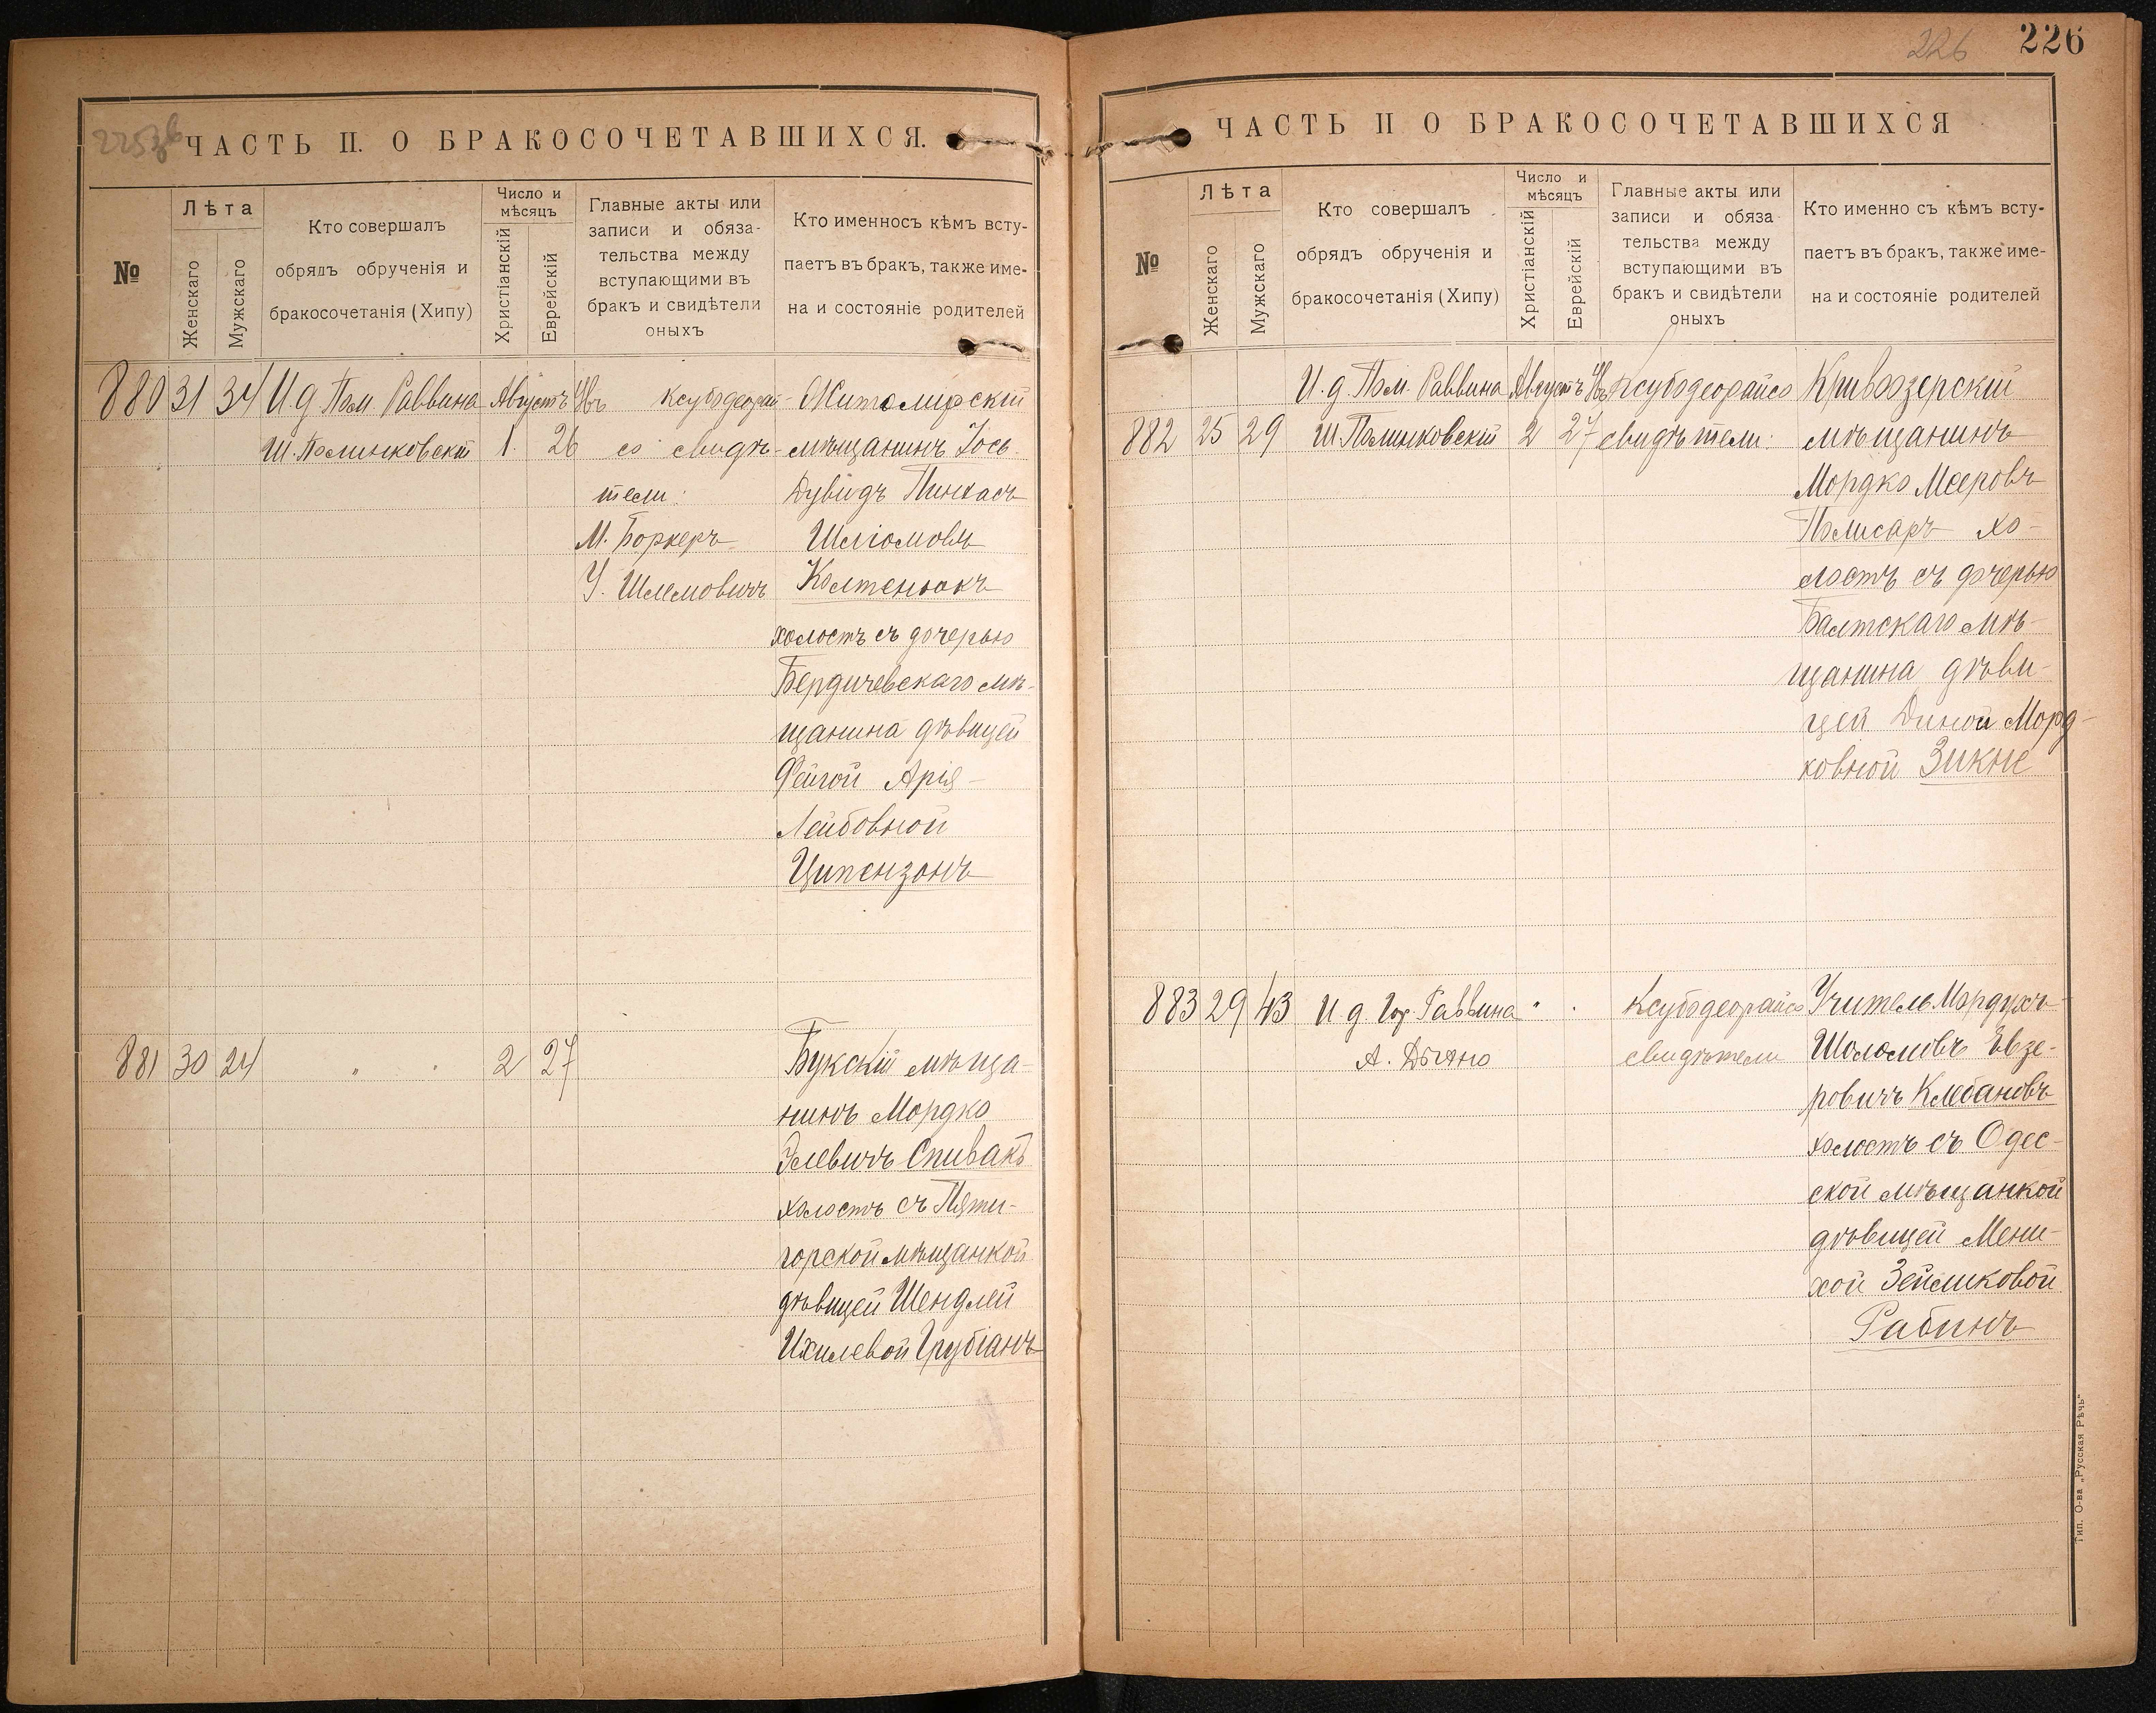 225 об
ЧАСТЬ II. О БРАКОСОЧЕТАВШИХСЯ.
№
Лѣта
Женскаго
Мужскаго
Кто совершалъ
обрядъ обрученія и
бракосочетанія (Хипу)
Число и
мѣсяцъ
Христіанскій
Еврейскій
Главные акты или
записи и обяза-
тельства между
вступающими въ
бракъ и свидѣтели
оныхъ
Кто именносъ кѣмъ всту-
паетъ въ бракъ, также име-
на и состояніе родителей
880 31 34 И. д. Пом. Раввина Августъ Овъ ксубодеорай- Житомирскій
Ш. Полинковскій 1 26 со свидѣ- мѣщанинъ Іось
тели: Дувидъ Пинхасъ
М. Боркеръ Шліомовъ
У. Шлемовичъ Колтенюкъ
холостъ съ дочерью
Бердичевскаго мѣ-
щанина дѣвицей
Фейгой Арія-
Лейбовной
Ципензонъ
881 30 24 " " 2 27 Букскій мѣща-
нинъ Мордко
Элевичъ Спивакъ
холостъ съ Пяти-
горской мѣщанкой
дѣвицей Шендлей
Ихилевой Грубіанъ
226
226
ЧАСТЬ II О БРАКОСОЧЕТАВШИХСЯ
№
Лѣта
Женскаго
Мужскаго
Кто совершалъ
обрядъ обрученія и
бракосочетанія (Хипу)
Число и
мѣсяцъ
Христіанскій
Еврейскій
Главные акты или
записи и обяза
тельства между
вступающими въ
бракъ и свидѣтели
оныхъ
Кто именно съ кѣмъ всту-
паетъ въ бракъ, также име-
на и состояніе родителей
И. д. Пом. Раввина Августъ Овъ Ксубодеорайсо Кривоозерскій
882 25 29 Ш. Полинковскій 2 27 свидѣтели: мѣщанинъ
Мордко Мееровъ
Полисаръ хо-
лостъ съ дочерью
Балтскаго мѣ-
щанина дѣви-
цей Диной Морд-
ковной Зикне
883 29 43 И. д. Гор. Раввина " " Ксубодеорайсо Учитель Мордухъ
А. Дыхно свидѣтели Шоломовъ Евзе-
ровичъ Клебановъ
холостъ съ Одес-
ской мѣщанкой
дѣвицей Мени-
хой Зейликовой
Рабинъ
Тип. О-ва „Русская Рѣчь"